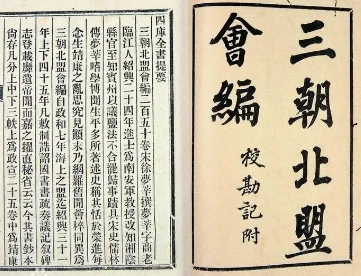 三朝北盟
會編
校勘記附
四庫全書提要
三朝北盟會編二百五十卷宋徐夢莘撰夢莘字商老
臨江人紹興二十四年進士為南安軍教授改知湘陰
縣官至知賓州以議鹽法不合罷歸事蹟具宋史儒林
傳夢莘嗜學博聞生平多所著述史稱其恬於榮進每
念生靖康之亂思究見顛末乃網羅舊聞薈稡同異為
三朝北盟會編自政和七年海上之盟迄紹興三十一
年上下四十五年凡敕制誥詔國書書疏奏議記敘碑
志登載靡遺帝聞而嘉之擢直秘省云云今其書鈔本
尚存凡分上中下三帙上為政宣二十五卷中為靖康